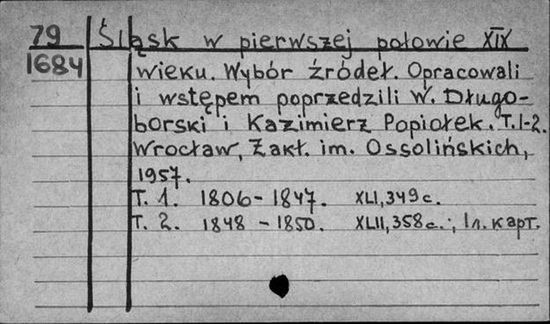 79
1684
Śląsk w pierwszej połowie XIX
wieku. Wybór źródeł. Opracowali
i wstępem poprzedzili W. Długo-
borski i Kazimierz Popiołek. T.1-2.
Wrocław, Zakł. im. Ossolińskich,
1957.
T. 1. 1806-1847. XLI,349c.
T. 2. 1848-1850. XLII,358c.; 1л. карт.